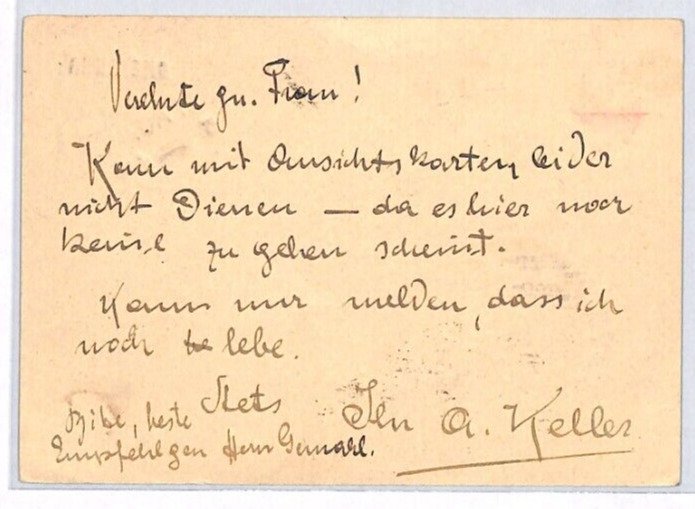 Verehrte gn. Frau!
Kann mit Ansichtskarten leider
nicht Dienen — da es hier noch
keine zu geben scheint.
Kann nur melden, dass ich
noch le lebe.
Bitte, beste Stets Ihr A. Keller
Empfehlgen Herrn Gemahl.